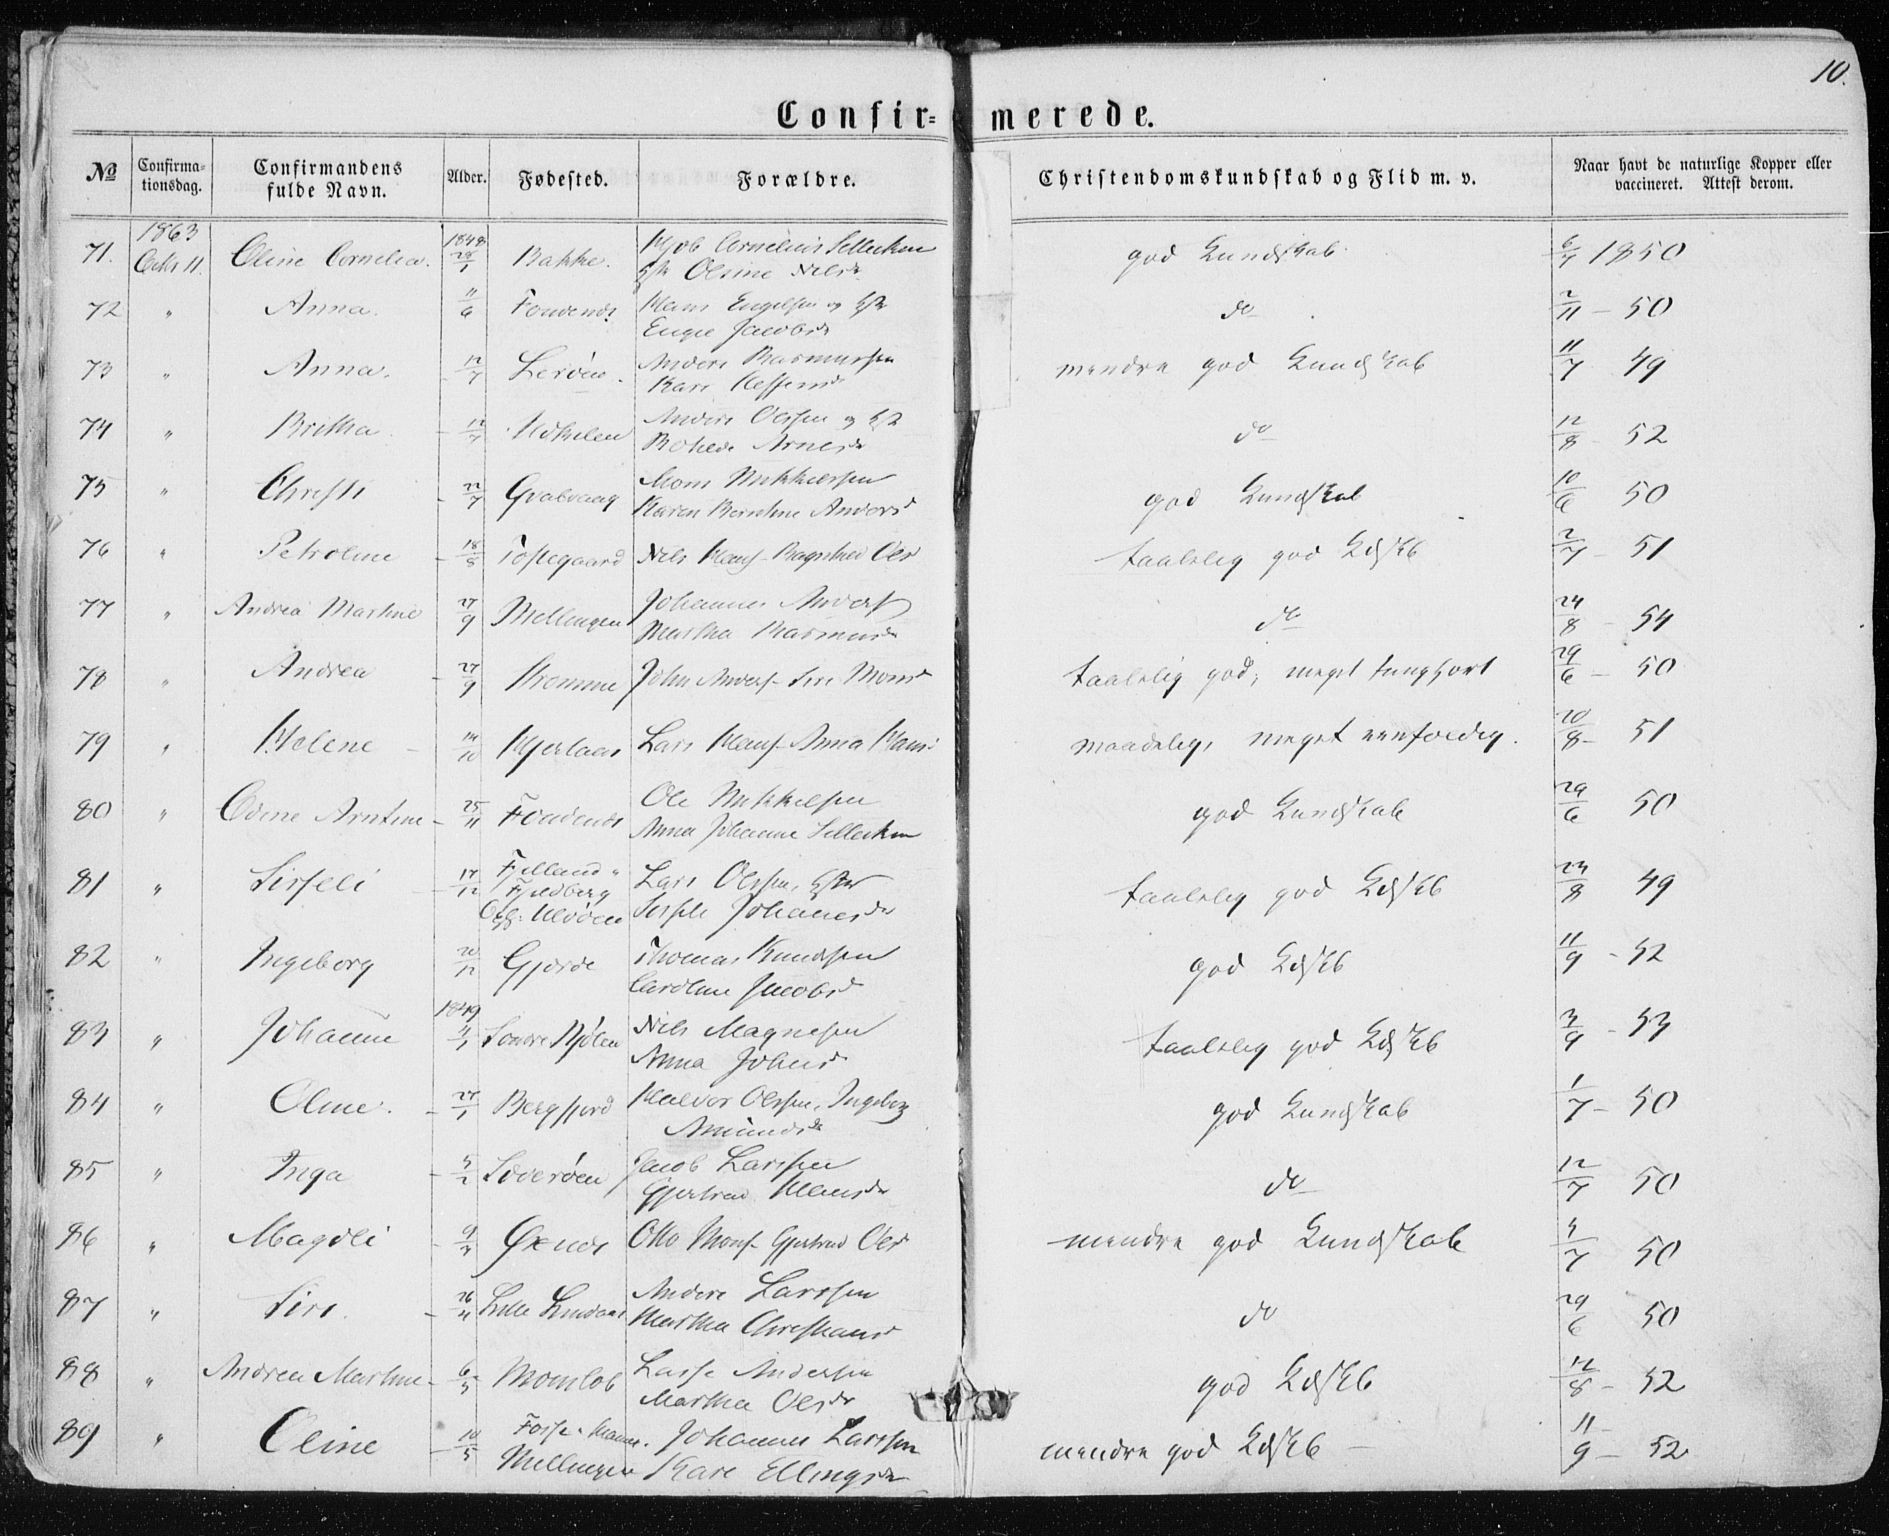 10.
Confir= merede.
№ Confirma=tionsdag. Confirmandens fulde Navn. Alder. Fødested. Forældre. Christendomskundskab og Flid m. v. Naar havt de naturlige Kopper eller vaccineret. Attest derom.
1863 1848
71. Octbr 11. Oline Cornelia. 28/1 Bakke. Cornelius Olsine Nilsdr god Kundskab 6/7 1850
72 " Anna. 11/6 Hans Engelsen og Jacobsdr do 2/11 - 50
73 " Anna. 12/7 Lerøen. Anders Rasmussen Kari mindre god Kundskab 11/7 49
74 " Britha 12/7 Anders Olssen og Bothilde Arnesdr do 12/8 - 52
75 " Christi - 22/7 Gvalvaag Mons Mikkelsen Karen Berntine Andersd god Kundskab 10/6 50
76 " Petroline - 18/8 Toftegaard Nils Hans. Ragnhild Olsd taalelig god Kdskb 2/7 - 51
77 " Andrea Martine 27/9 Mellingen Johannes Anders. Martha Rasmusdr do 24/8 - 54
78 " Andrea - 27/9 Strømme John Anders. Siri Monsd taalelig god; meget tunghørt 29/6 - 50
79 " Helene - 14/10 Kjerlaas Lars Hans. Anna Hans: maadelig, meget eenfoldig. 20/8 - 51
80 " Odine Arntine - 25/11 Ole Mikkelsen Anna Johanne god Kundskab 29/6 50
81 " Sirseli - 17/12 Fjelland Fjeldberg Lars Olssen, Sirseli Johannesdr taalelig god Kdskb 23/8 49
82 " Ingeborg 20/12 Gjerde Thomas Knudsen Caroline Jacobsd god Kdskb 11/9 - 52
1849
83 " Johanne 4/1 Søndre Kjølen Nils Magnesen Anna Johnsd taalelig god Kdskb 3/9 - 53
84 " Oline. - 27/1 Bergfjord Halvor Olssen, Ingeborg Amundsdr god Kundskab 1/7 - 50
85 " Inga - 3/2 Sæverøen Jacob Larssen Gjertrud Hansdr do 12/7 50
86 " Magdli - 9/3 Øxnes Otto Mons. Gjertrud Olsd mindre god Kundskab 4/7 50
87 " Siri. - 26/4 Lille Lindaas Anders Larssen Martha Christiansd do 29/6 50
88 " Andrea Martine - 6/5 Monslob Lasse Andersen Martha Olsdr god Kdskb 12/8 - 52
89 " Oline - 10/5 Mellingen Johannes Larssen Kari Ellingsdr mindre god Kdskb - 11/9 - 52